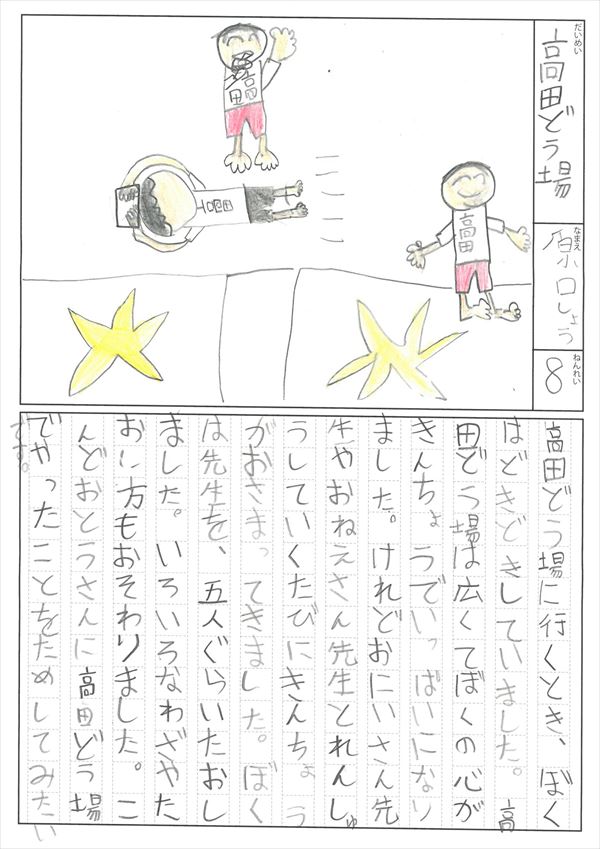 だいめい
高田どう場
なまえ
原口しょう
ねんれい
8
高田
高田
高田
高田どう場に行くとき、ぼく
はどきどきしていました。高
田どう場は広くてぼくの心が
きんちょうでいっぱいになり
ました。けれどおにいさん先
生やおねえさん先生とれんしゅ
うしていくたびにきんちょう
がおさまってきました。ぼく
は先生を、五人ぐらいたおし
ました。いろいろなわざやた
おし方もおそわりました。こ
んどおとうさんに高田どう場
でやったことをためしてみたい
です。